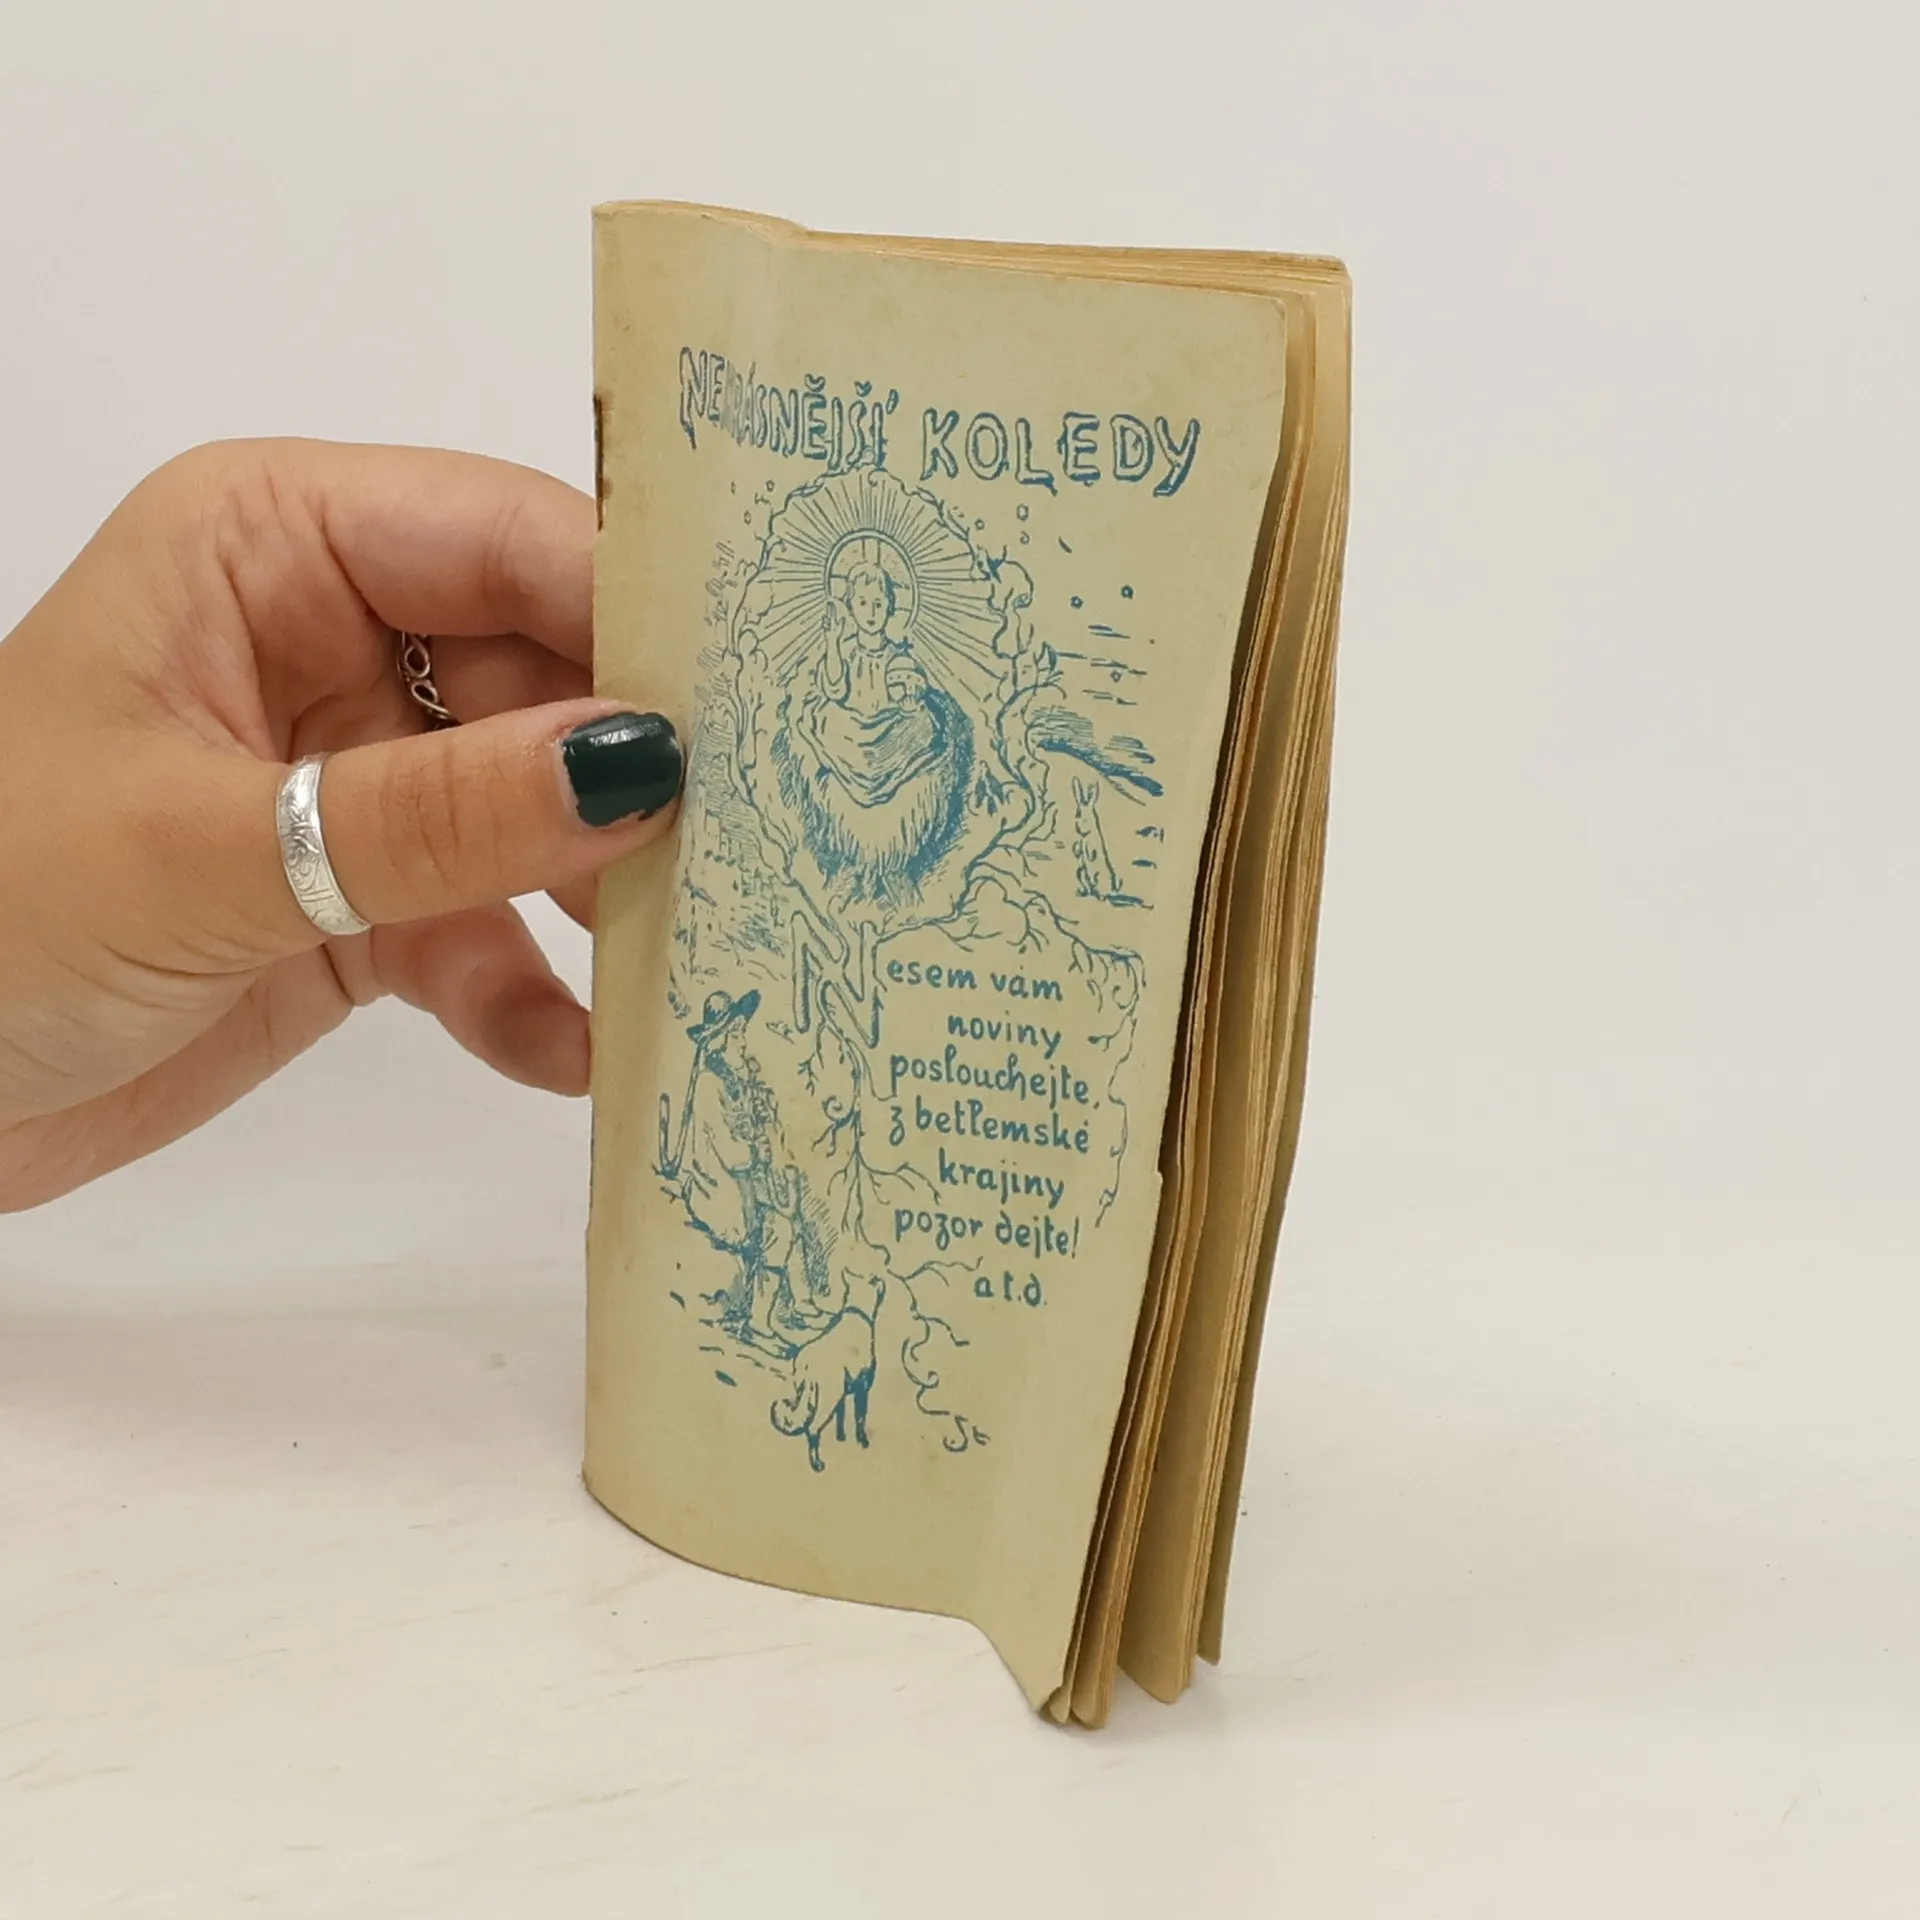 NEJKRÁSNĚJŠÍ KOLEDY
Nesem vám
noviny
poslouchejte,
z betlemské
krajiny
pozor dejte!
a t.d.
St